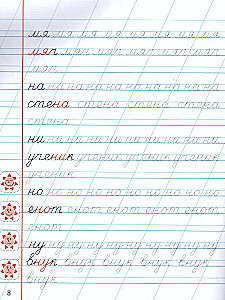 мя мя мя мя мя мя мя мя
мяч мяч мяч мяч мяч мяч
мяч
на на на на на на на на на на
стена стена стена стена
стена
ни ни ни ни ни ни ни ни ни
ученик ученик ученик ученик
ученик
но но но но но но но но но но
енот енот енот енот енот
енот
ну ну ну ну ну ну ну ну ну
внук внук внук внук внук
внук
8